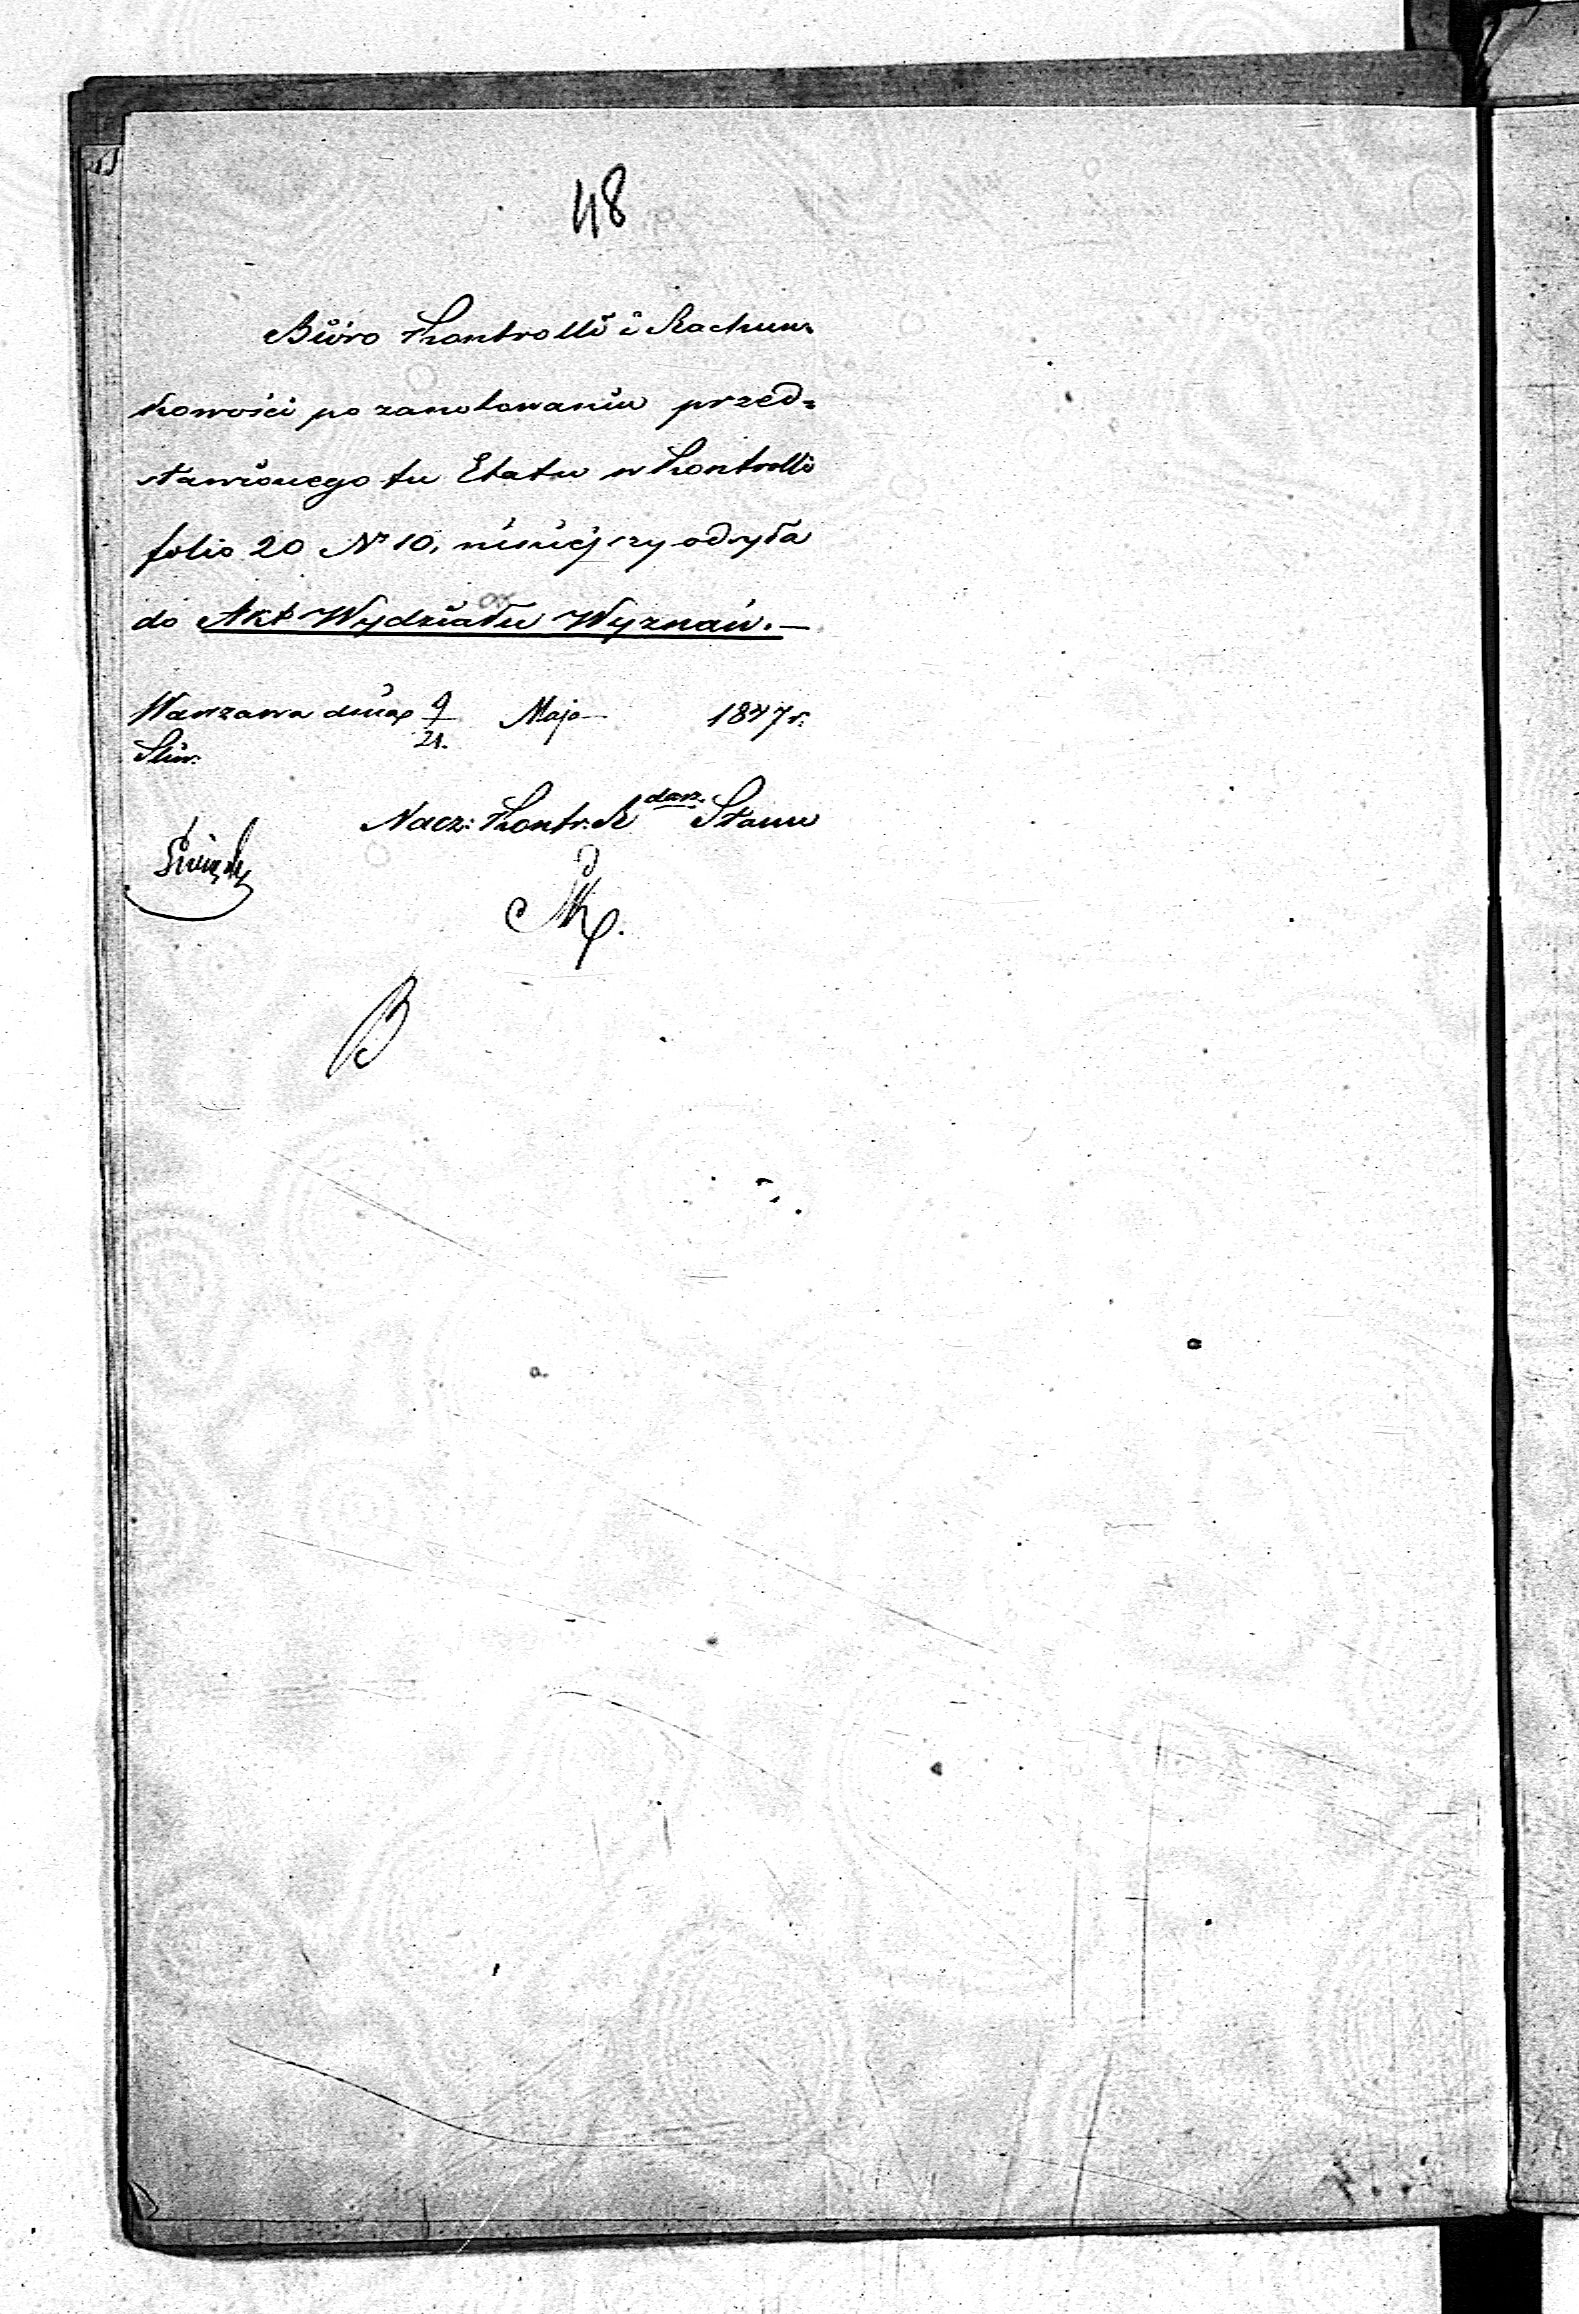 48
Biuro Kontrolli i Rachun=
kowości po zanotowaniu przed=
stawionego tu Etatu w Kontrolli
folio 20 Nº 10, niniejszy odsyła
do Akt Wydziału Wyznań. —
Warszawa dnia 9/21. Maja 1847 r.
Nacz: Kontr: R Stanu
B